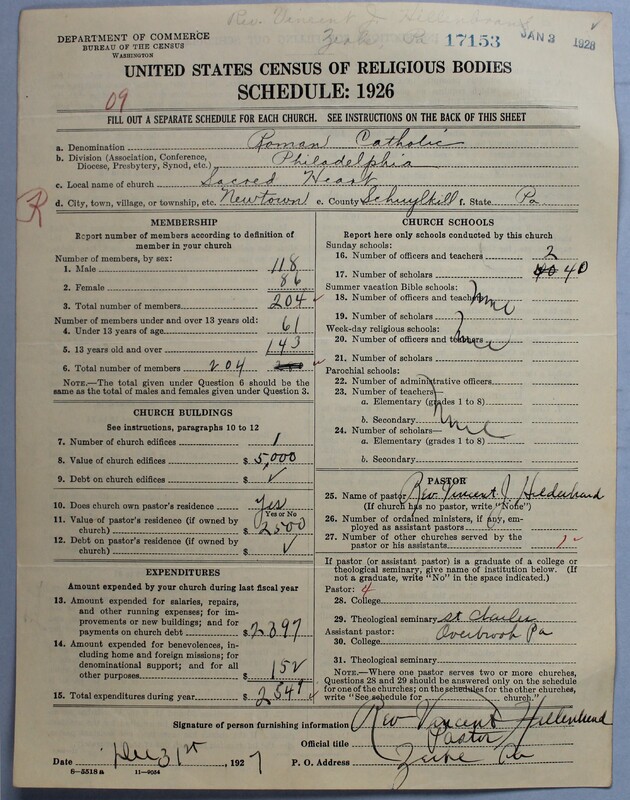 Rev. Vincent J.
17153 JAN 3 1928
DEPARTMENT OF COMMERCE
BUREAU OF THE CENSUS
WASHINGTON
UNITED STATES CENSUS OF RELIGIOUS BODIES
SCHEDULE: 1926
09
FILL OUT A SEPARATE SCHEDULE FOR EACH CHURCH. SEE INSTRUCTIONS ON THE BACK OF THIS SHEET
a. Denomination Roman Catholic
b. Division (Association, Conference, Diocese, Presbytery, Synod, etc.) Philadelphia
c. Local name of church Sacred Heart
d. City, town, village, or township, etc. Newtown e. County Schuylkill f. State Pa
R
MEMBERSHIP
Report number of members according to definition of
member in your church
Number of members, by sex:
1. Male 118
2. Female 86
3. Total number of members 204
Number of members under and over 13 years old:
4. Under 13 years of age 61
5. 13 years old and over 143
6. Total number of members 204
NOTE.—The total given under Question 6 should be
the same as the total of males and females given under Question 3.
CHURCH BUILDINGS
See instructions, paragraphs 10 to 12
7. Number of church edifices 1
8. Value of church edifices $ 5,000
9. Debt on church edifices $ ✓
10. Does church own pastor's residence Yes
Yes or No
11. Value of pastor's residence (if owned by
church) $ 2500
12. Debt on pastor's residence (if owned by
church) $ ✓
EXPENDITURES
Amount expended by your church during last fiscal year
13. Amount expended for salaries, repairs,
and other running expenses; for im-
provements or new buildings; and for
payments on church debt $ 2397
14. Amount expended for benevolences, in-
cluding home and foreign missions; for
denominational support; and for all
other purposes $ 152
15. Total expenditures during year $ 2549
CHURCH SCHOOLS
Report here only schools conducted by this church
Sunday schools:
16. Number of officers and teachers 2
17. Number of scholars 40 40
Summer vacation Bible schools:
18. Number of officers and teachers none
19. Number of scholars
Week-day religious schools:
20. Number of officers and teachers none
21. Number of scholars
Parochial schools:
22. Number of administrative officers
23. Number of teachers—
a. Elementary (grades 1 to 8)
b. Secondary none
24. Number of scholars—
a. Elementary (grades 1 to 8)
b. Secondary
PASTOR
25. Name of pastor Rev. Vincent J. Hildebrand
(If church has no pastor, write "None")
26. Number of ordained ministers, if any, em-
ployed as assistant pastors
27. Number of other churches served by the
pastor or his assistants 1
If pastor (or assistant pastor) is a graduate of a college or
theological seminary, give name of institution below. (If
not a graduate, write "No" in the space indicated.)
Pastor: 4
28. College
29. Theological seminary St Charles
Assistant pastor: Overbrook Pa
30. College
31. Theological seminary
NOTE.—Where one pastor serves two or more churches,
Questions 28 and 29 should be answered only on the schedule
for one of the churches; on the schedules for the other churches,
write "See schedule for church."
Signature of person furnishing information Rev Vincent
Official title Pastor
Date Dec 31st, 1927 P. O. Address Pa
8-5518a 11-9034